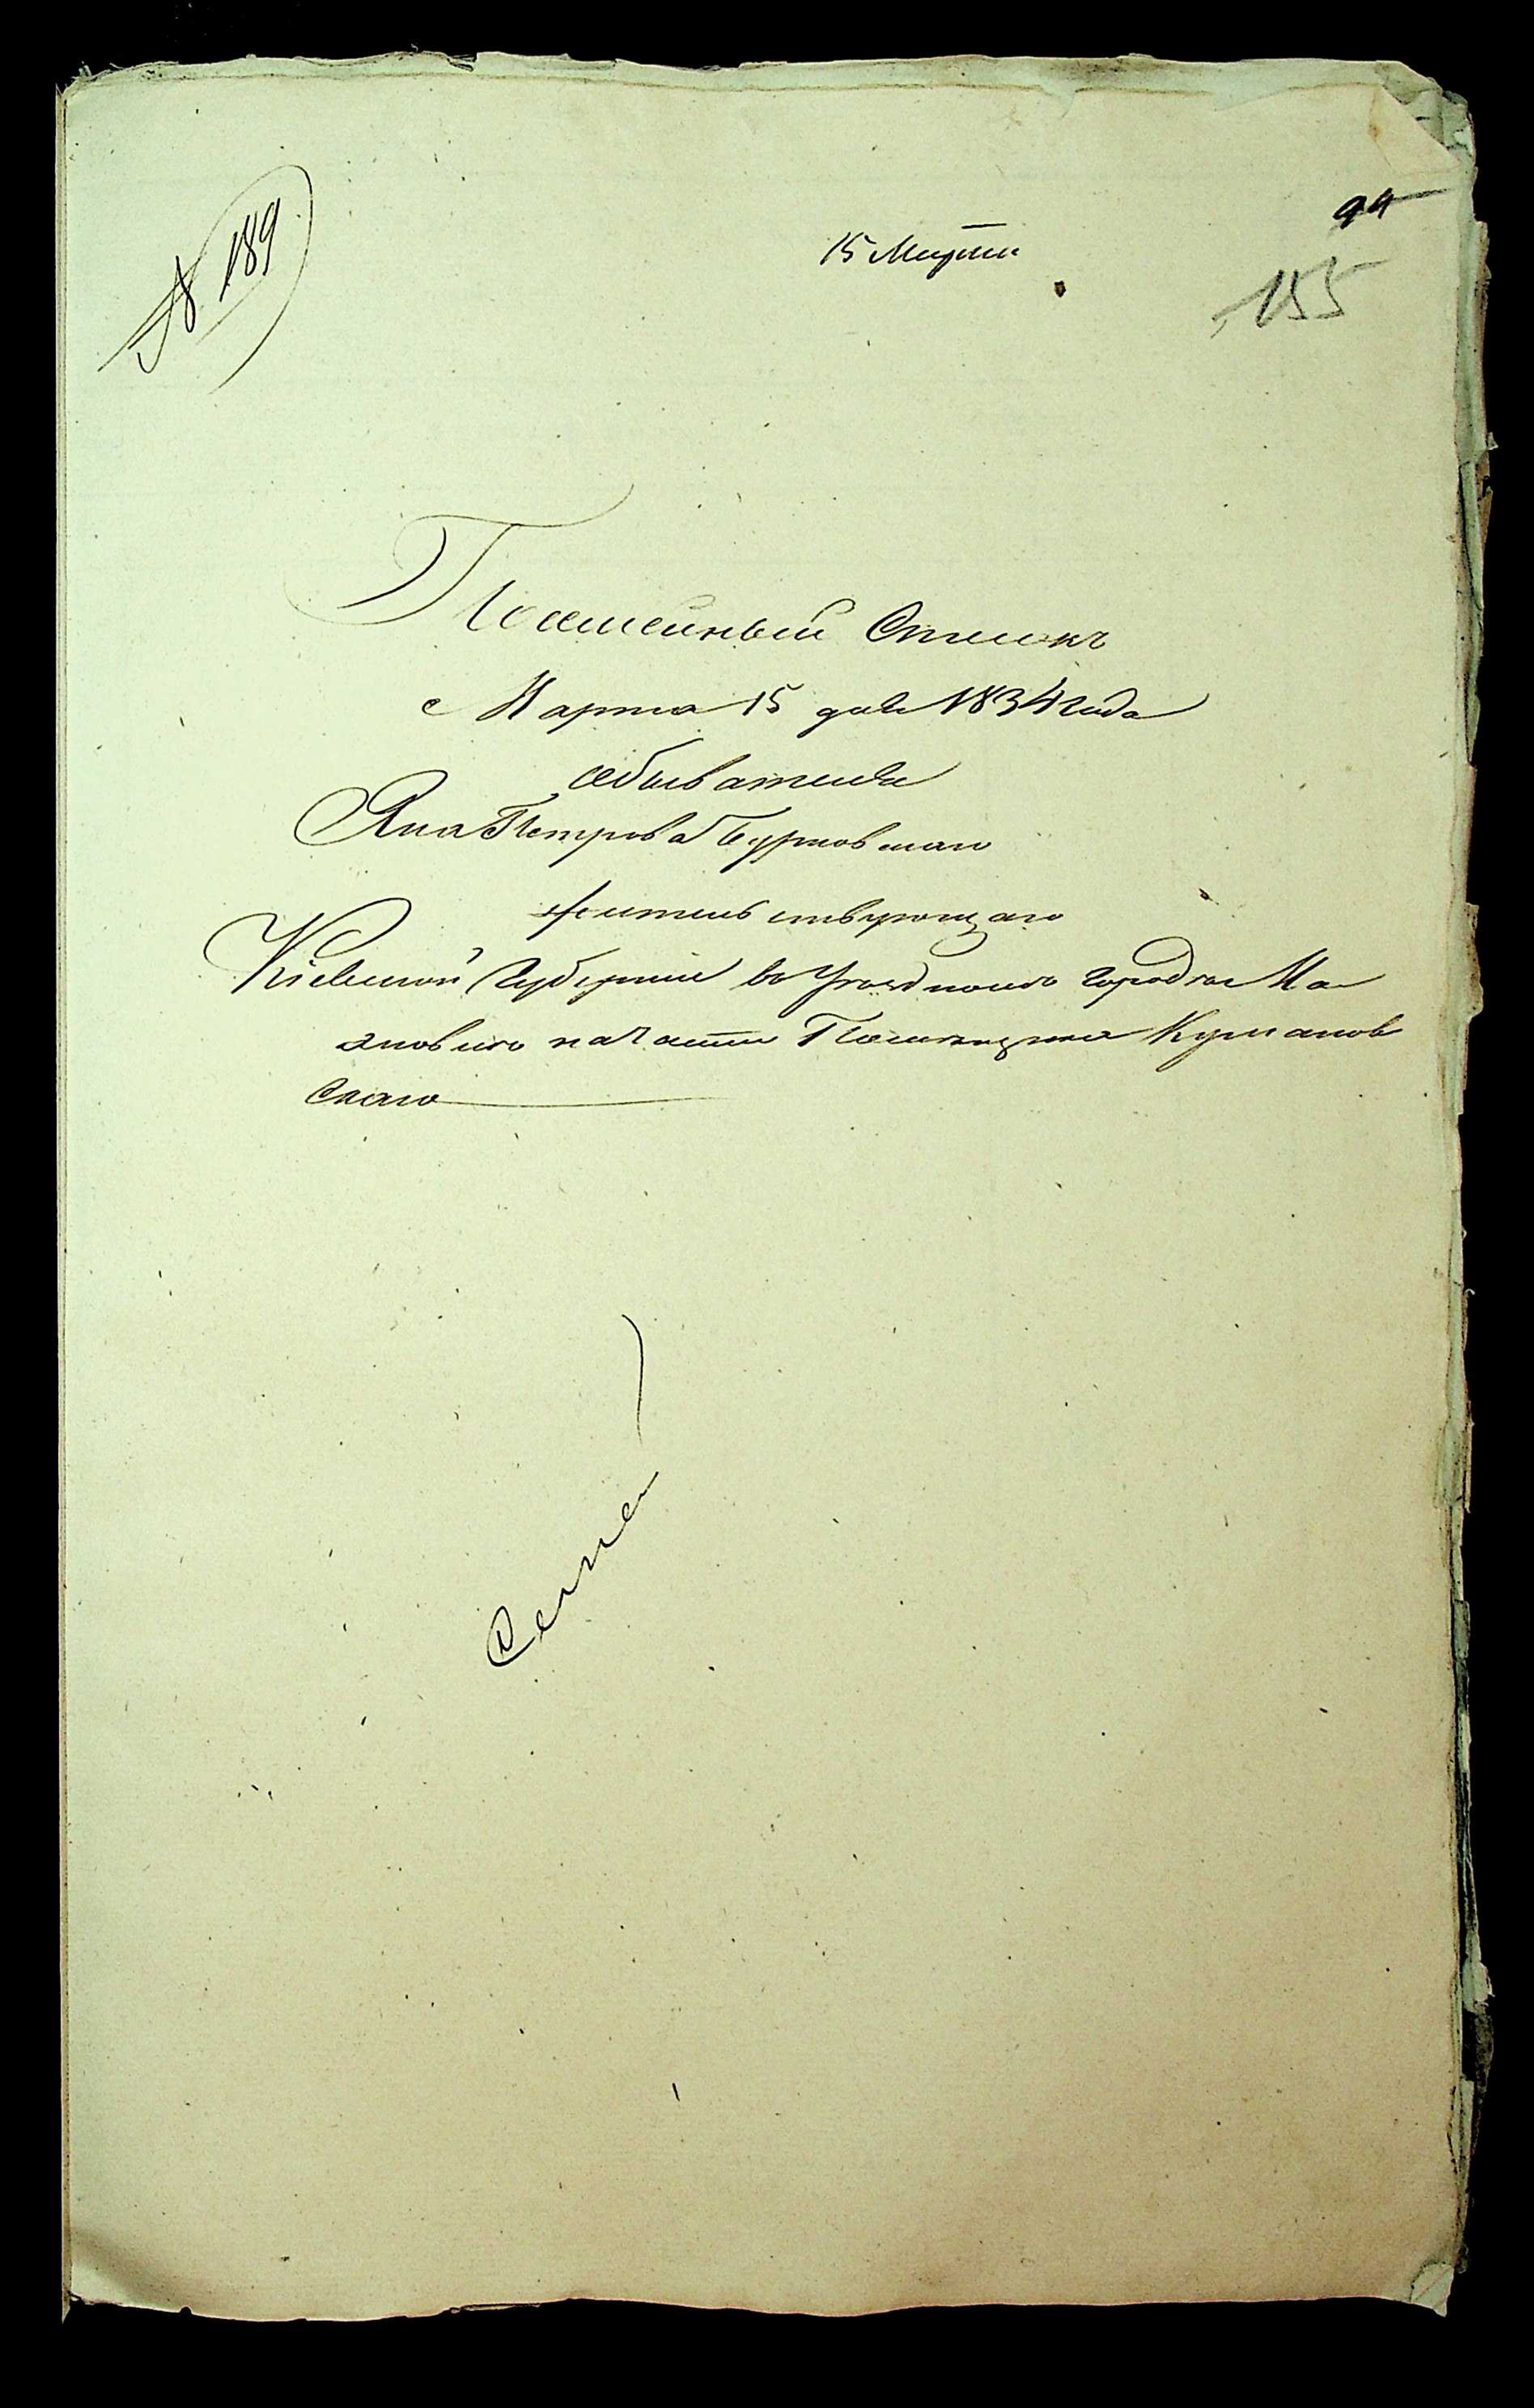 № 189
15 Марта
94
155
Посемейный Списокъ
Марта 15 дня 1834 года
обывателя
Яна Петрова Бурковскаго
жительствующаго
Кіевской Губерніи въ Уѣздномъ городѣ Ма
хновкѣ на части Помещика Куманов
скаго